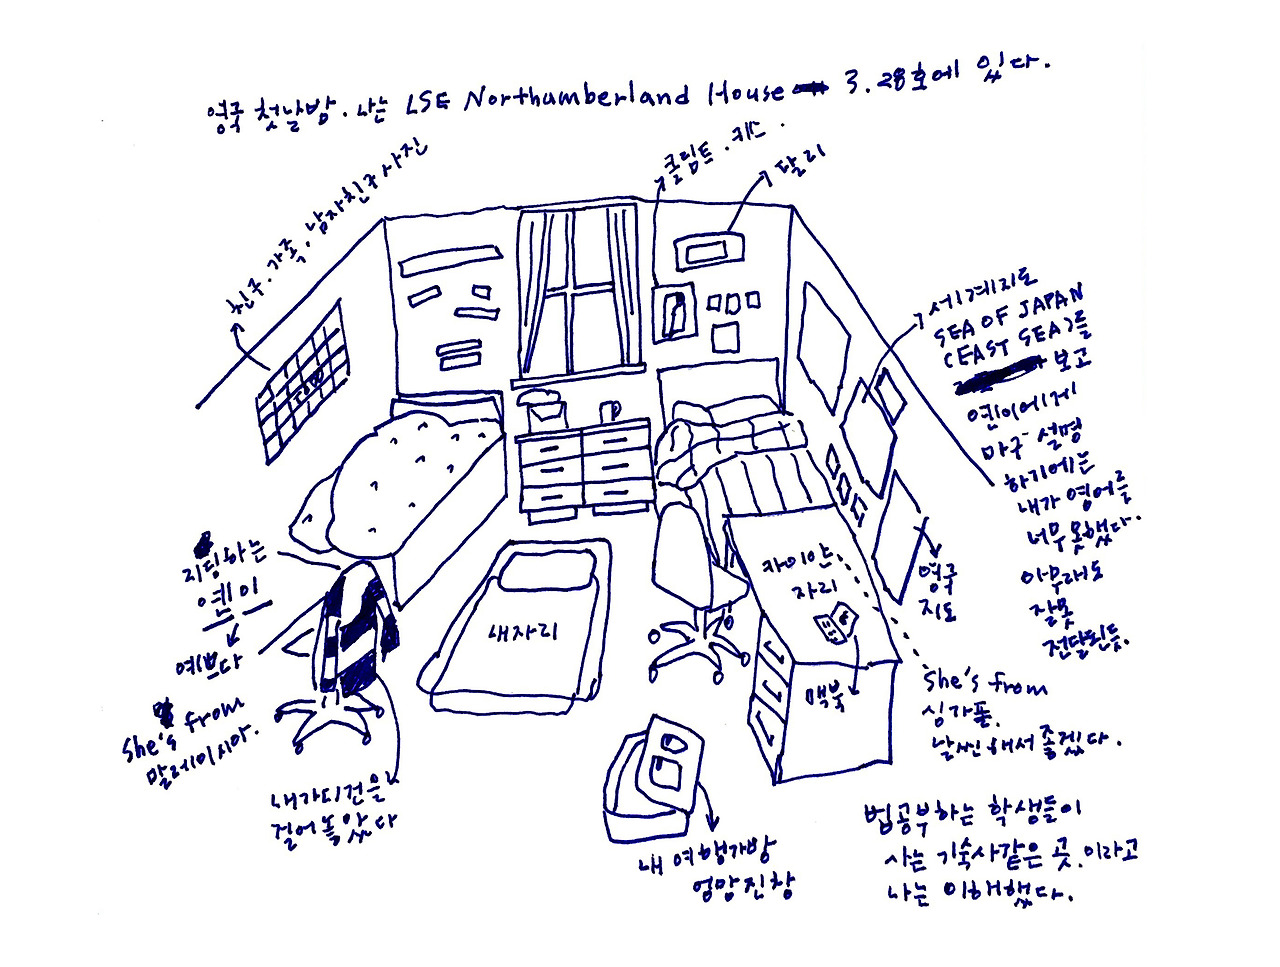 영국 첫날밤. 나는 LSE Northumberland House 3.28호에 있다.
친구. 가족. 남자친구 사진
클림트. 키스.
달리
세계지도
SEA OF JAPAN
(EAST SEA)를
보고
옌이에게
마구 설명
하기에는
내가 영어를
너무 못했다.
아무래도
잘못
전달된듯.
영국
지도
자이얀
자리
맥북
She's from
싱가폴.
날씬해서 좋겠다.
내자리
지딩하는
옌이
예쁘다
She's from
말레이시아.
내가디건을
걸어놓았다
내 여행가방
엉망진창
법공부하는 학생들이
사는 기숙사같은 곳.이라고
나는 이해했다.